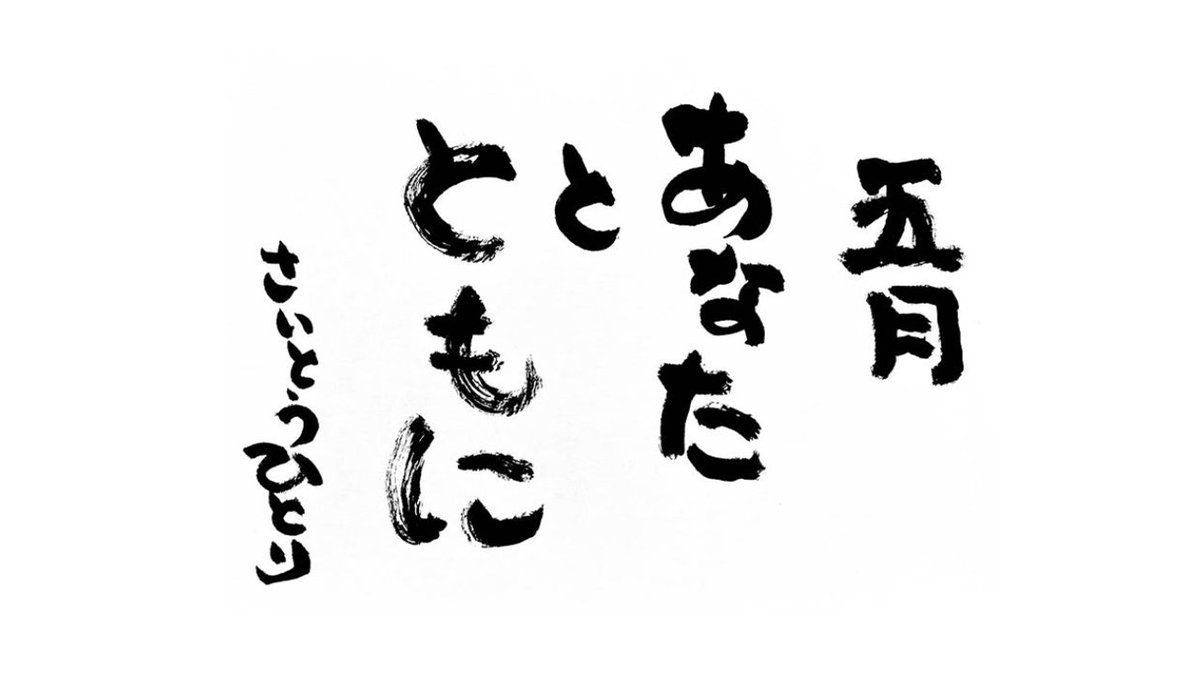 五月
あなた
と
ともに
さいとうひとり